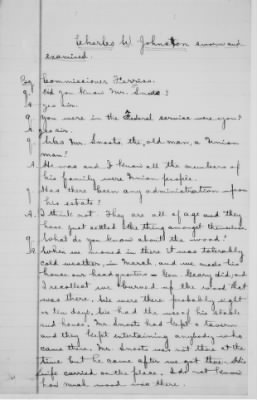 Charles W. Johnston sworn and
examined.
By Commissioner Ferriss.
Q. Did you know Mr. Smoots?
A. Yes sir.
Q. You were in the Federal service were you?
A. Yes sir.
Q. Was Mr. Smoots, the old man, a Union
man?
A. He was and I know all the members of
his family were Union people.
Q. Has there been any administration upon
his estate?
A. I think not. They are all of age and they
have just settled the thing amongst themselves.
Q. What do you know about the wood?
A. When we moved in there it was tolerably
cold weather, in March, and we made his
house our headquarters - Gen Geary did, and
I recollect we burned up the wood that
was there. We were there probably eight
or ten days. We had the use of his stable
and house. Mr. Smoots had kept a tavern
and then kept entertaining anybody who
came there. Mr. Smoots was not there at the
time but he came after we got there. His
wife carried on the place. I do not know
how much wood was there.